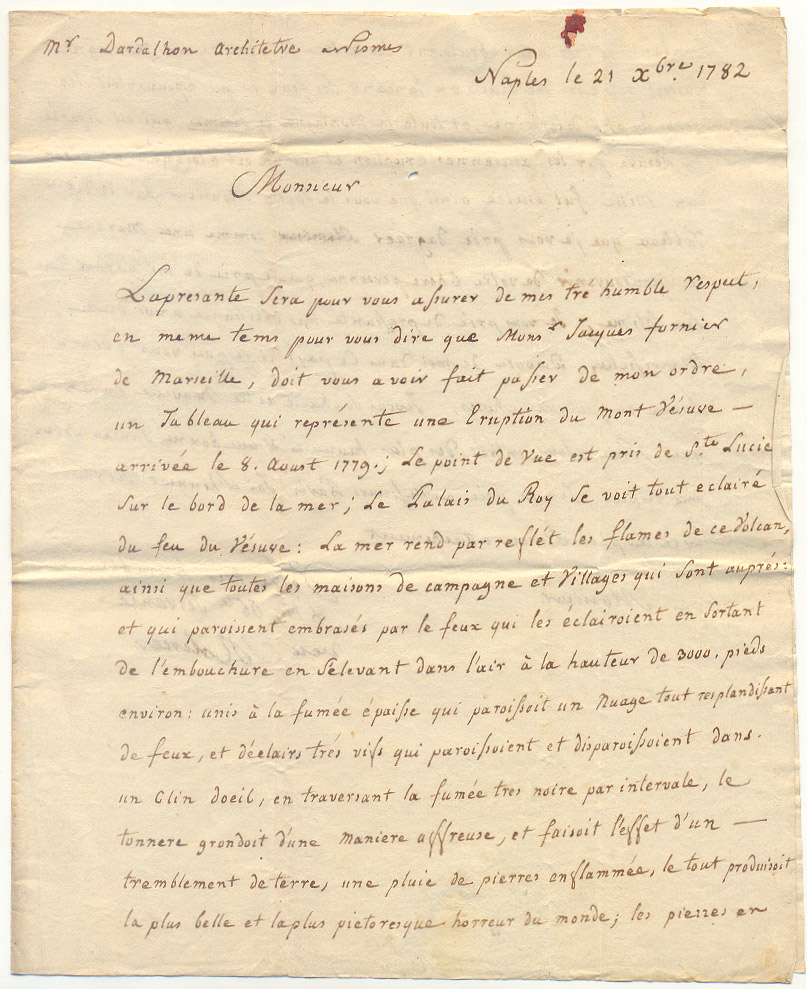 Mr Dardalhon Architetve a Nismes
Naples le 21 Xbre. 1782
Monsieur
Lapresante Sera pour vous assurer de mes tré humble respect,
en meme tems pour vous dire que Monsr Jacques fornier
de Marseille, doit vous avoir fait passer de mon ordre,
un Tableau qui représente une Eruption du Mont Vésuve —
arrivée le 8. Aoust 1779.; Le point de Vue est pris de Ste Lucie
Sur le bord de la mer; Le Palais du Roy se voit tout eclairé
du feu du Vésuve: La mer rend par reflét les flames de ce Volcan,
ainsi que toutes les maisons de campagne et Villages qui sont auprés:
et qui paroissent embrasés par le feux qui les éclairoient en Sortant
de l'embouchure en Sélevant dans l'air à la hauteur de 3000. pieds
environ: unis à la fumée épaisse qui paroissoit un Nuage tout resplandissant
de feux, et déclairs trés vifs qui paroissoient et disparoissoient dans.
un Clin doeil, en traversant la fumée tres noire par intervale, le
tonnere grondoit d'une Maniere affreuse, et faisoit l'effet d'un —
tremblement de terre, une pluie de pierres enflammée, le tout produisoit
la plus belle et laplus pictoresque horreur du monde; les pierres en